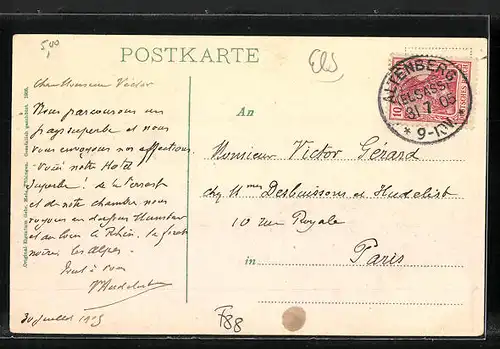 5,00
POSTKARTE
Els
Cher Monsieur Victor
Nous parcourons un
pays superbe et nous
vous envoyons nos affections
Voici notre Hotel
Superbe! de la terrasse
et de notre chambre nous
voyons en dessous Munster
et au loin le Rhin, la forêt
noire, les Alpes.
Tout à vous
30 Juillet 1905
An
Monsieur Victor Gérard
chez Mrs Desbuissons et Hudelist
10 rue Royale
in Paris
ALTENBERG
(ELSASS)
31 7 05
9-10V
10
F88